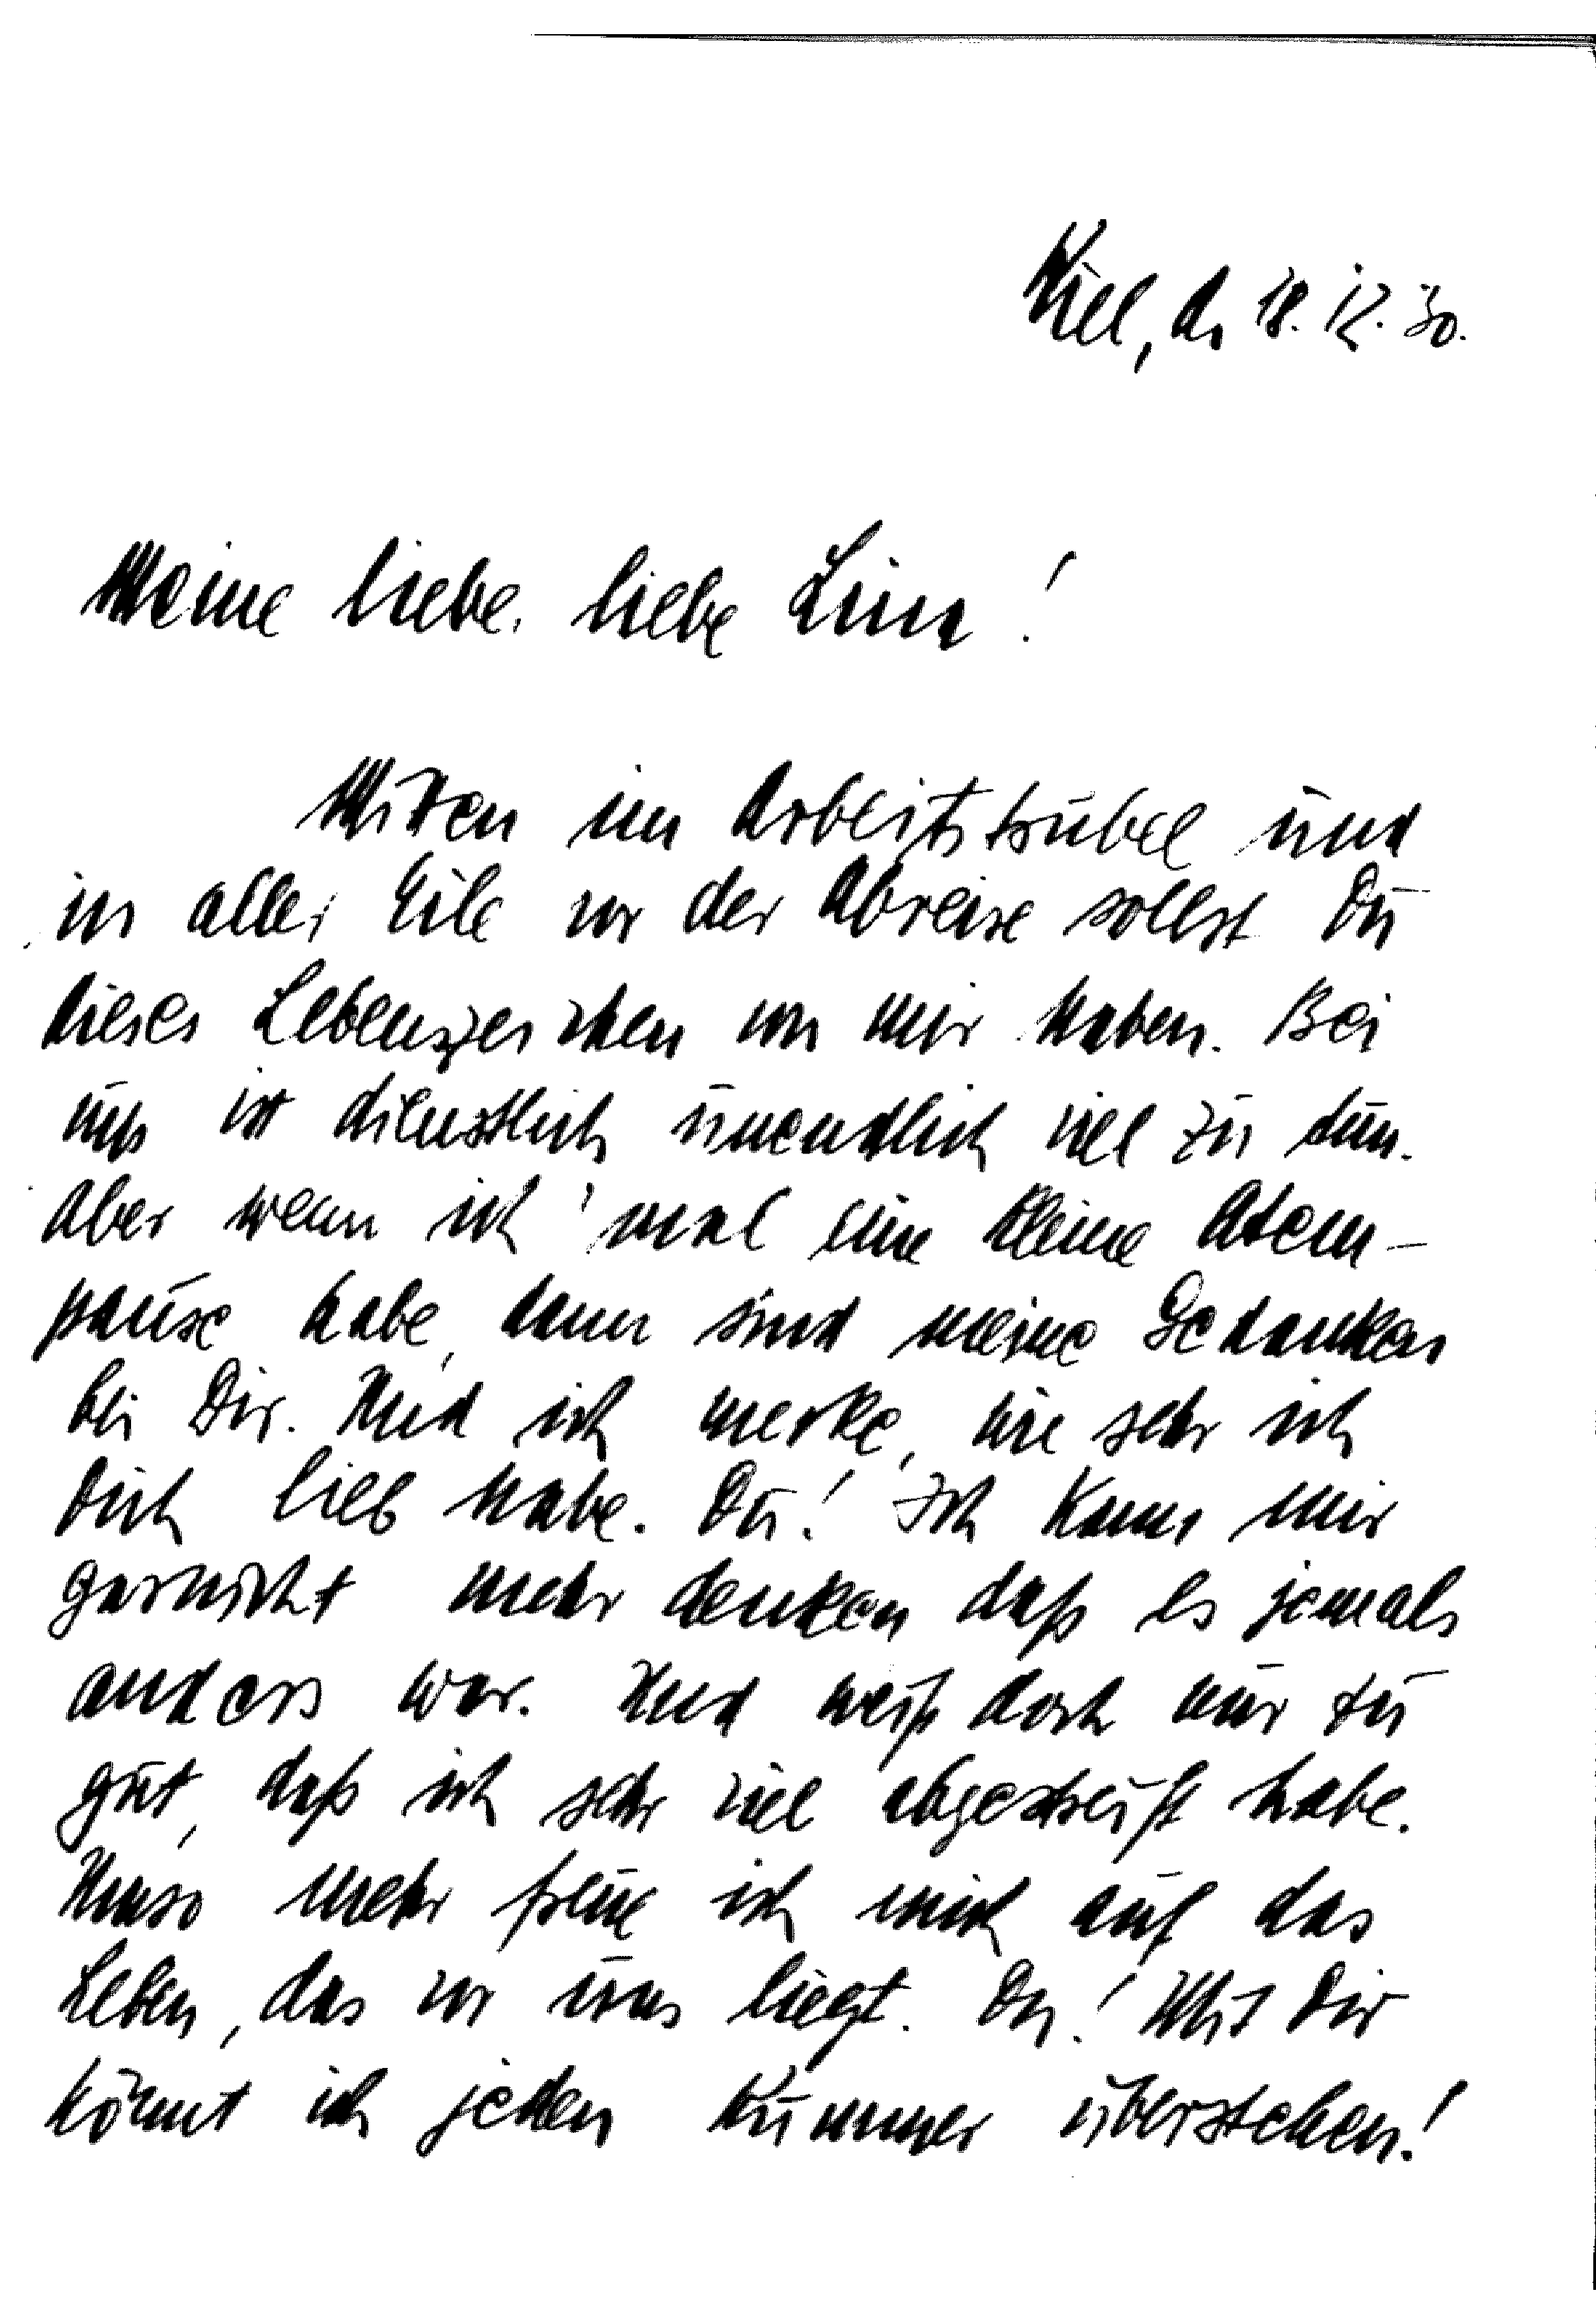 Kiel, d. 18.12.30.
Meine liebe, liebe Lina!
Mitten im Arbeitstrubel und
in aller Eile vor der Abreise sollst Du
dieses Lebenszeichen von mir haben. Bei
uns ist dienstlich unendlich viel zu tun.
Aber wenn ich 'mal eine kleine Atem-
pause habe, dann sind meine Gedanken
bei Dir. Und ich merke, wie sehr ich
Dich lieb habe. Du! Ich kann mir
garnicht mehr denken daß es jemals
anders war. Und weiß doch nur zu
gut, daß ich sehr viel abgestreift habe.
Umso mehr freue ich mich auf das
Leben, das vor uns liegt. Du! Mit Dir
könnt ich jeden Kummer überstehen!